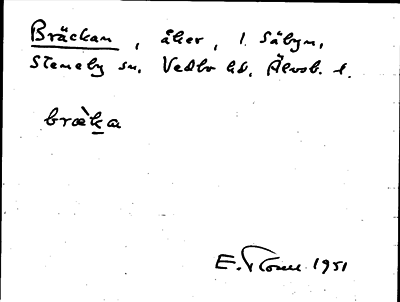 Bräckan, åker, l. Säbyn,
Steneby sn. Vedbo hd, Älvsb. l.
bræ̀ka
E. 1951